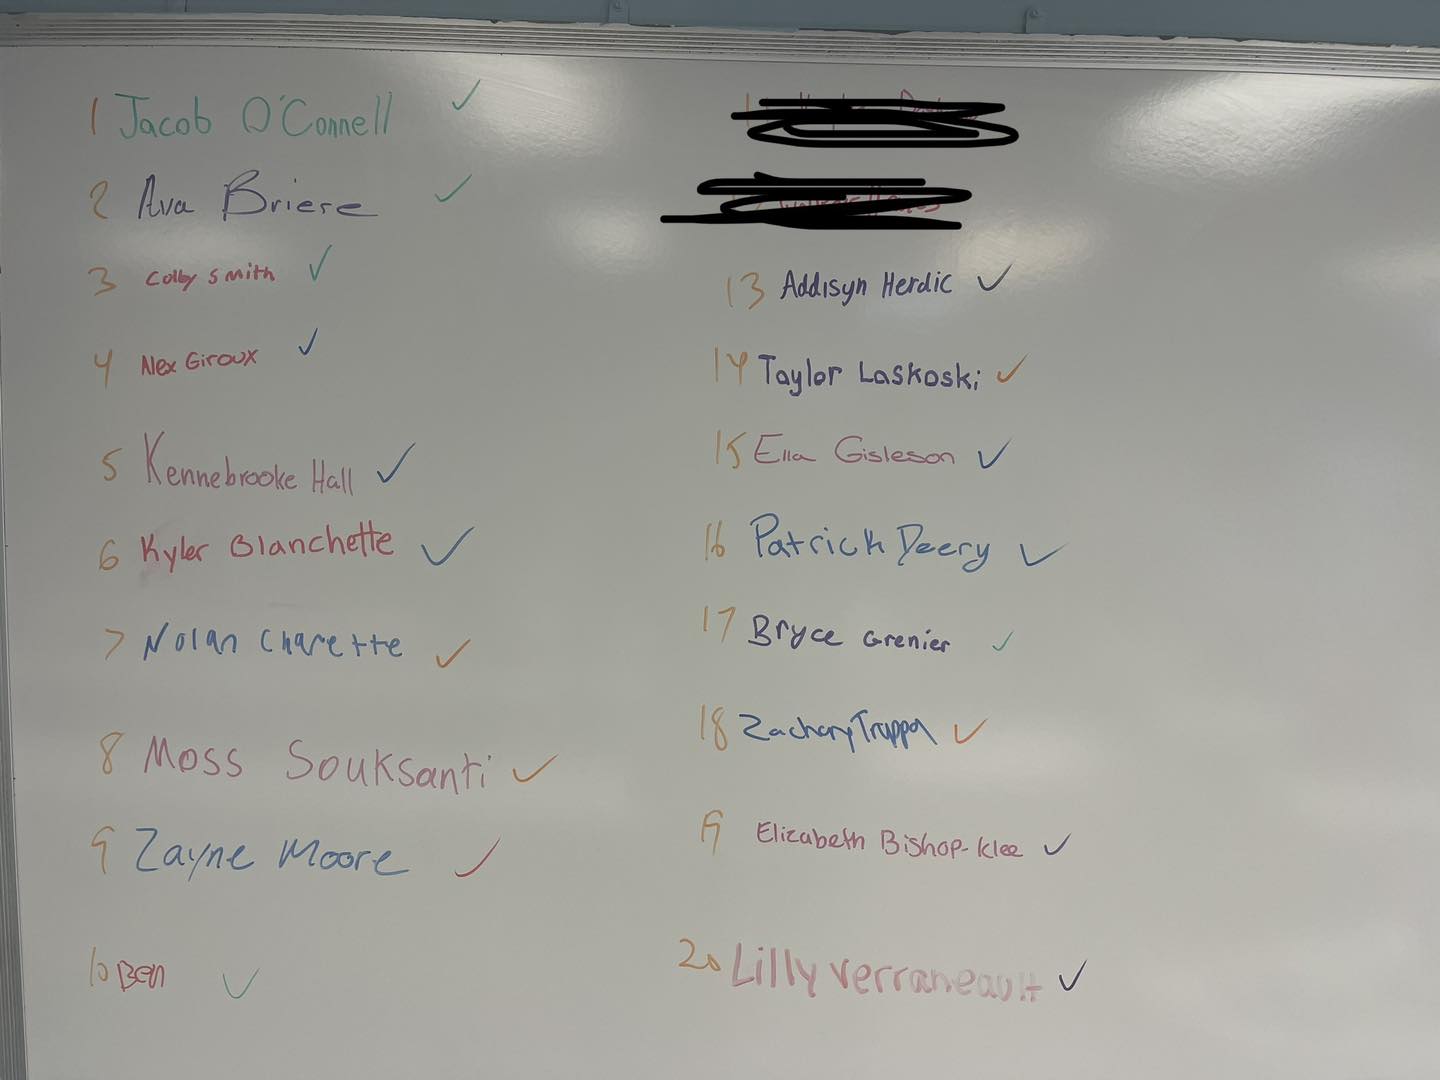 1 Jacob O'Connell ✓
2 Ava Briere ✓
3 Colby Smith ✓
4 Alex Giroux ✓
5 Kennebrooke Hall ✓
6 Kyler Blanchette ✓
7 Nolan Charette ✓
8 Moss Souksanti ✓
9 Zayne Moore ✓
10 Ben ✓
13 Addisyn Herdic ✓
14 Taylor Laskoski ✓
15 Ella Gisleson ✓
16 Patrick Deery ✓
17 Bryce Grenier ✓
18 Zachary Trappa ✓
19 Elizabeth Bishop-Klee ✓
20 Lilly Verraneault ✓